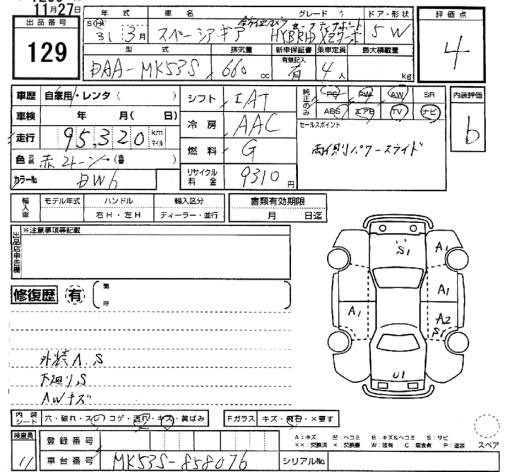 11月27日
出品番号
129
年式 車名 グレード ドア・形状
31 3月 スペーシア ギア HYBRID 5W
評価点
4
型式 排気量 新車保証書 乗車定員 最大積載量
有無記入
DAA-MK53S 660 cc 有 4人 kg
車歴 自家用・レンタ( )
シフト IAT
純正のみ PS PW AW SR
ABS エアB TV ナビ
内装評価
b
車検 年 月( 日)
冷房 AAC
セールスポイント
両側パワースライド
走行 95,320 km マイル
燃料 G
色 赤2トーン
リサイクル料金 9310円
カラーNo. DWh
輸入車 モデル年式 ハンドル 輸入区分
右H・左H ディーラー・並行
書類有効期限
月 日迄
出品店申告欄
※注意事項等記載
修復歴 有 箇所
S1
A1
A1 A1
A2
S1
U1
外装A.S
下廻りS
AWキズ
内装シート 穴・破れ・スレ・コゲ・汚れ・キズ・黄ばみ
Fガラス キズ・飛石・×要す
検査員
登録番号
A:キズ
××:交換済 ×:交換要
スペア
車台番号 MK53S-858076
シリアルNo.